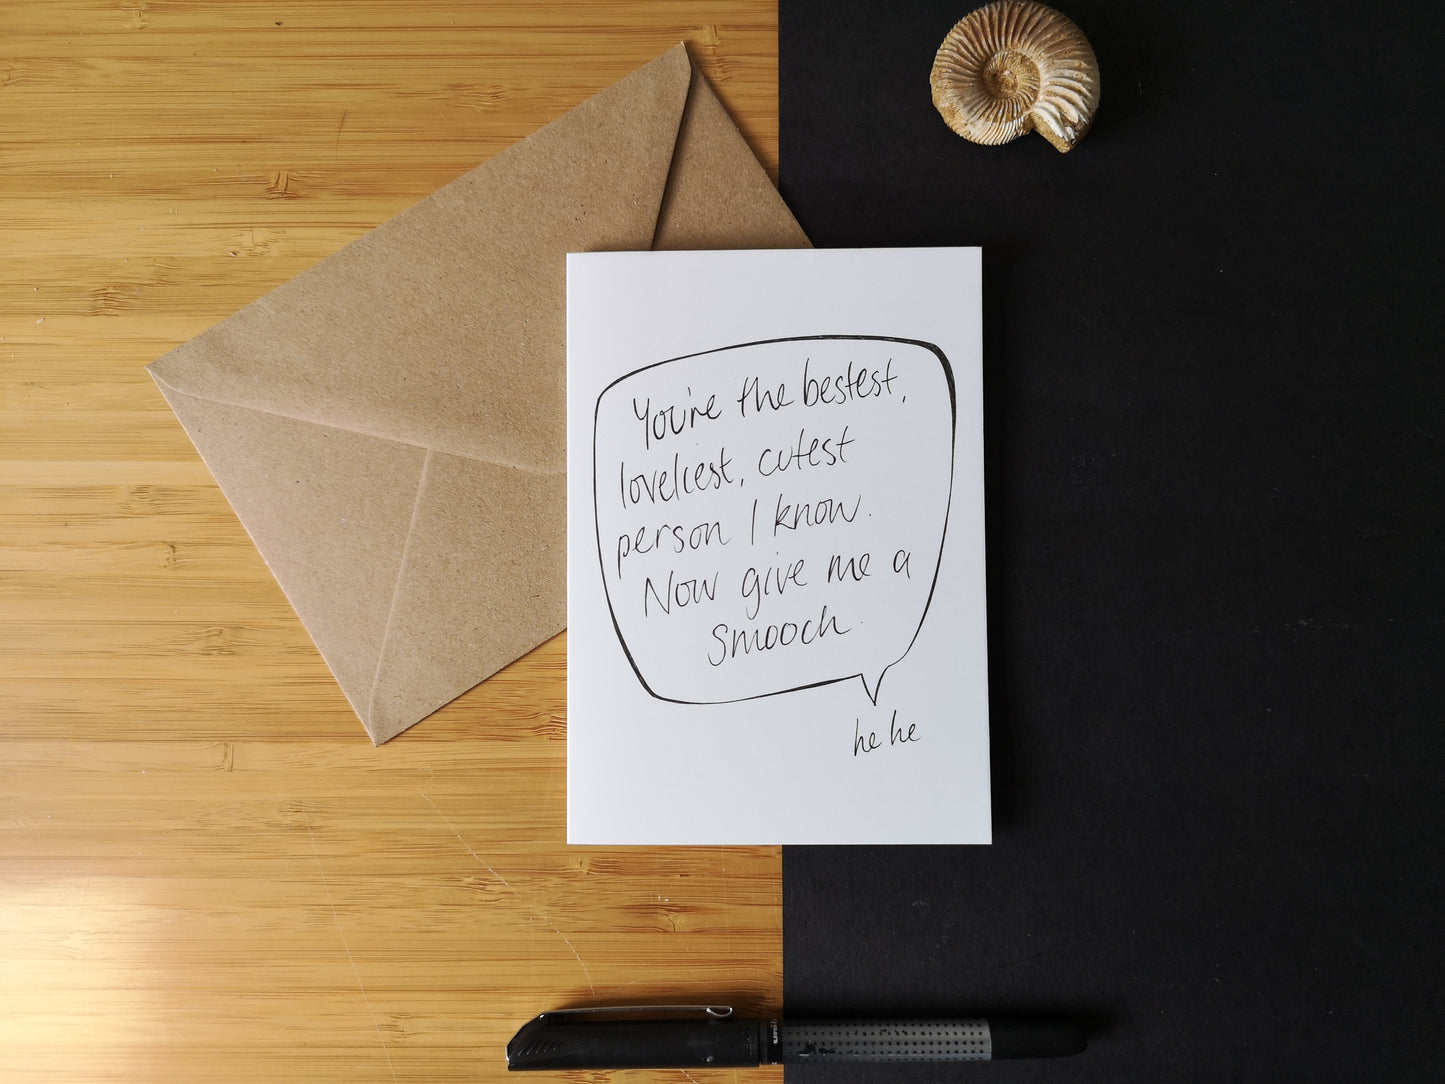 You're the bestest,
loveliest, cutest
person I know.
Now give me a
smooch.
he he